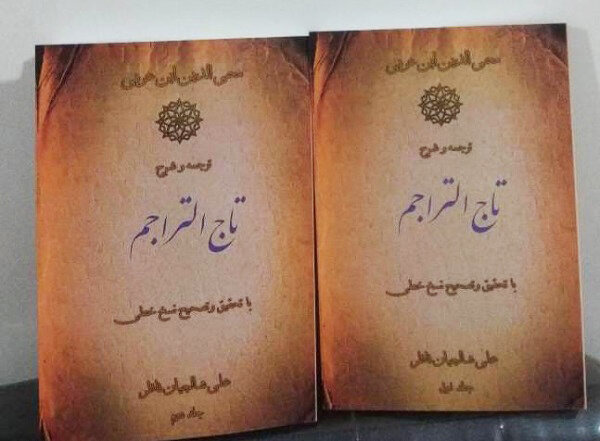 محی الدین ابن عربی
ترجمه و شرح
تاج التراجم
با تحقیق و تصحیح نسخ خطی
علی صالحیان فاطر
جلد دوم
محی الدین ابن عربی
ترجمه و شرح
تاج التراجم
با تحقیق و تصحیح نسخ خطی
علی صالحیان فاطر
جلد اول